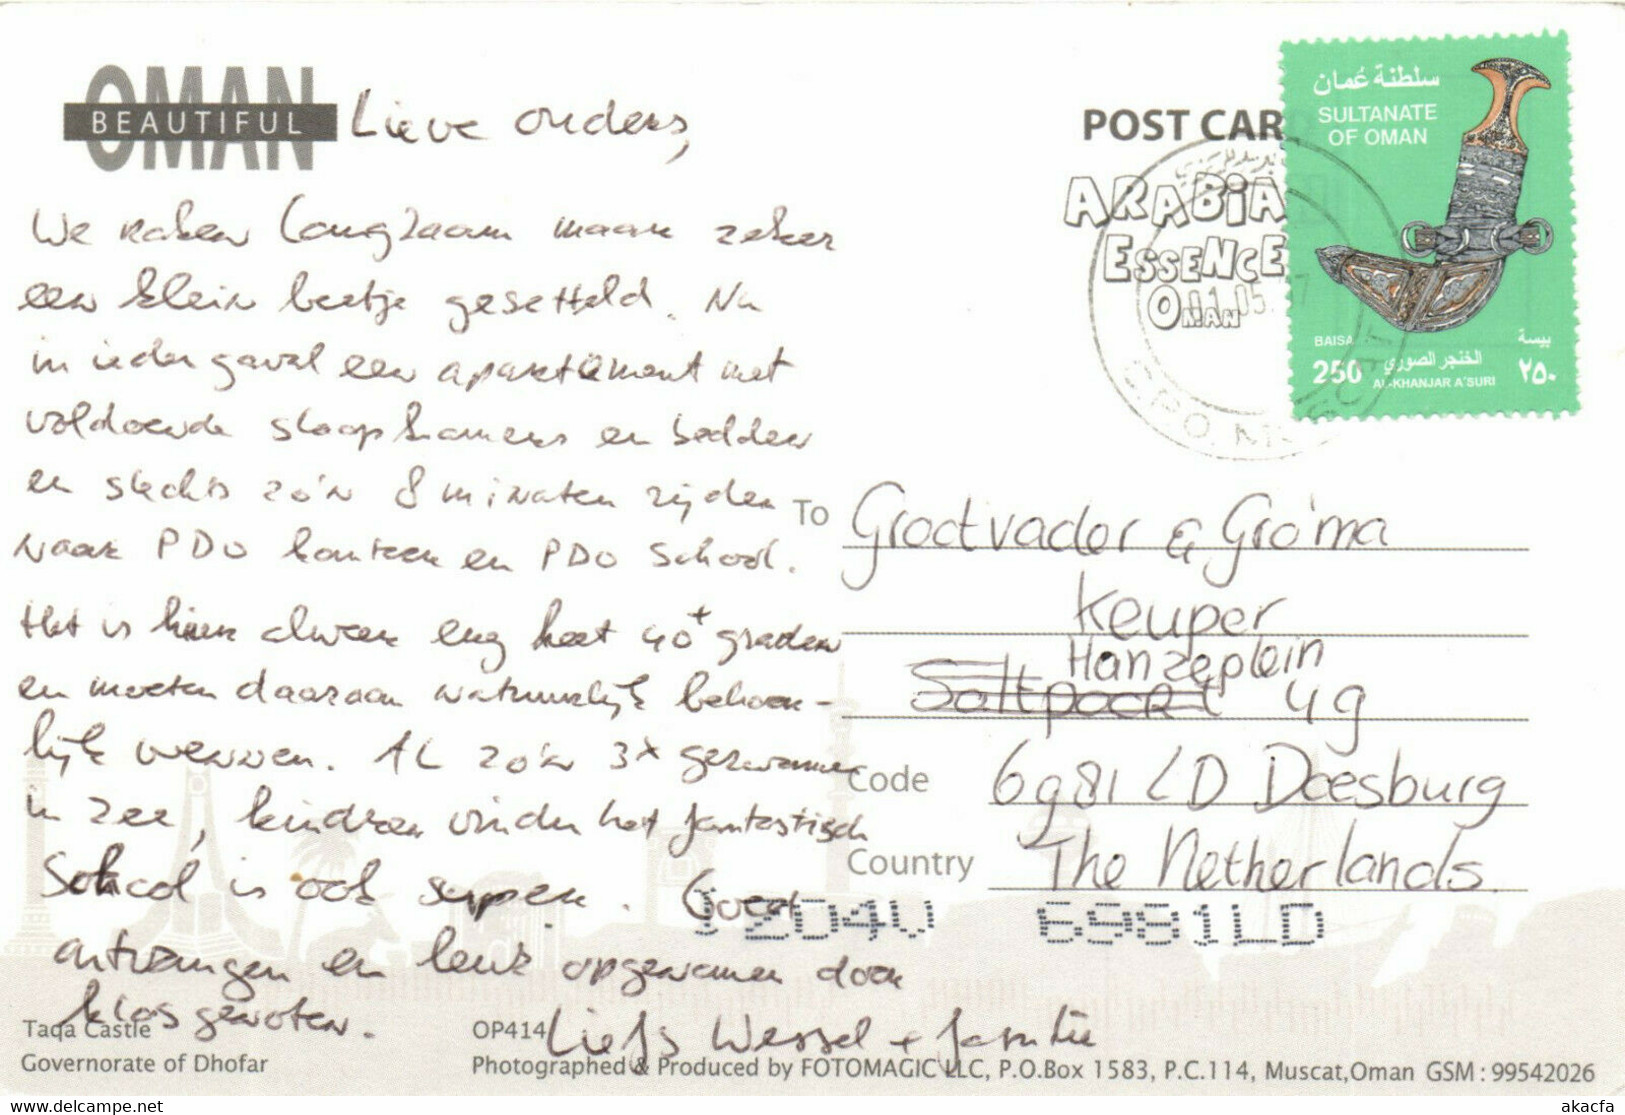 OMAN
BEAUTIFUL
Lieve ouders,
We raken langzaam maar zeker
een klein beetje gesetteld. Nu
in ieder geval een apartement met
voldoende slaapkamers en bedden
en slechts zo'n 8 minuten rijden
naar PDO kantoor en PDO School.
Het is hier alweer erg heet 40+ graden
en moeten daaraan natuurlijk behoor-
lijk wennen. Al zo'n 3x gezwommen
in zee, kinderen vinden het fantastisch
School is ook super. Goed
ontvangen en leuk opgenomen door
klasgenoten.
Liefs Wessel + familie
POST CAR
ARABIA
ESSENCE
OMAN
11.05.
G.P.O.
سلطنة عُمان
SULTANATE
OF OMAN
BAISA
250
بيسة
٢٥٠
الخنجر الصوري
AL-KHANJAR A'SURI
To Grootvader & Gro'ma
Keuper
Hanzeplein
4g
Code 6981 LD Doesburg
Country The Netherlands
6981LD
Taqa Castle
Governorate of Dhofar
OP414
Photographed & Produced by FOTOMAGIC LLC, P.O.Box 1583, P.C.114, Muscat,Oman GSM : 99542026
akacfa